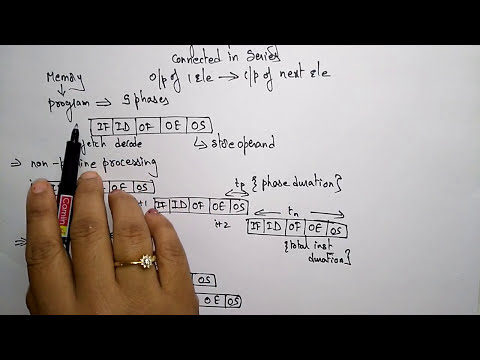 Connected in Series
O/p of 1 Ele → I/p of next Ele
Memory
program ⇒ 5 phases
IF ID OF OE OS
fetch decode
store operand
⇒ non-pipeline processing
OF OE OS
IF ID OF OE OS
tp {phase duration}
i+2
tn
IF ID OF OE OS
{total inst
duration}
⇒
OS
OE OS
Camlin